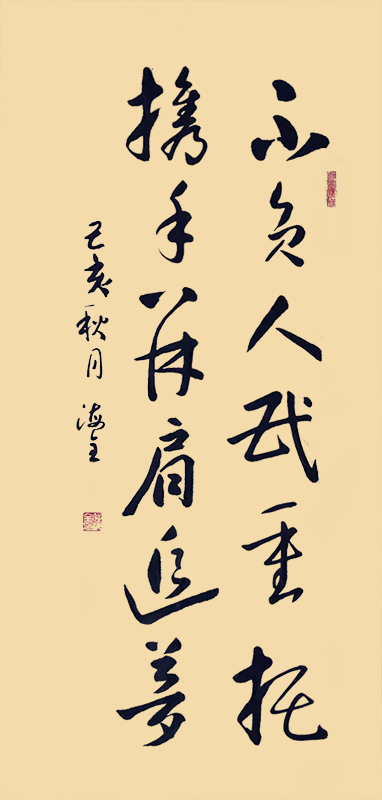 不负人民重托
携手并肩追梦
己亥秋月 海